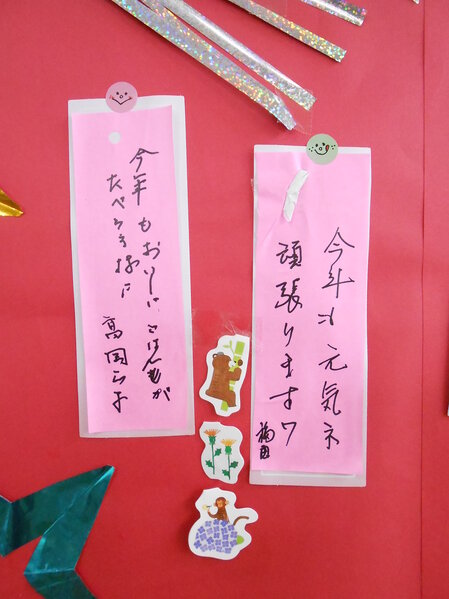 今年も元気で
頑張ります
福田
今年もおいしいごはんが
たべられます様に
高岡